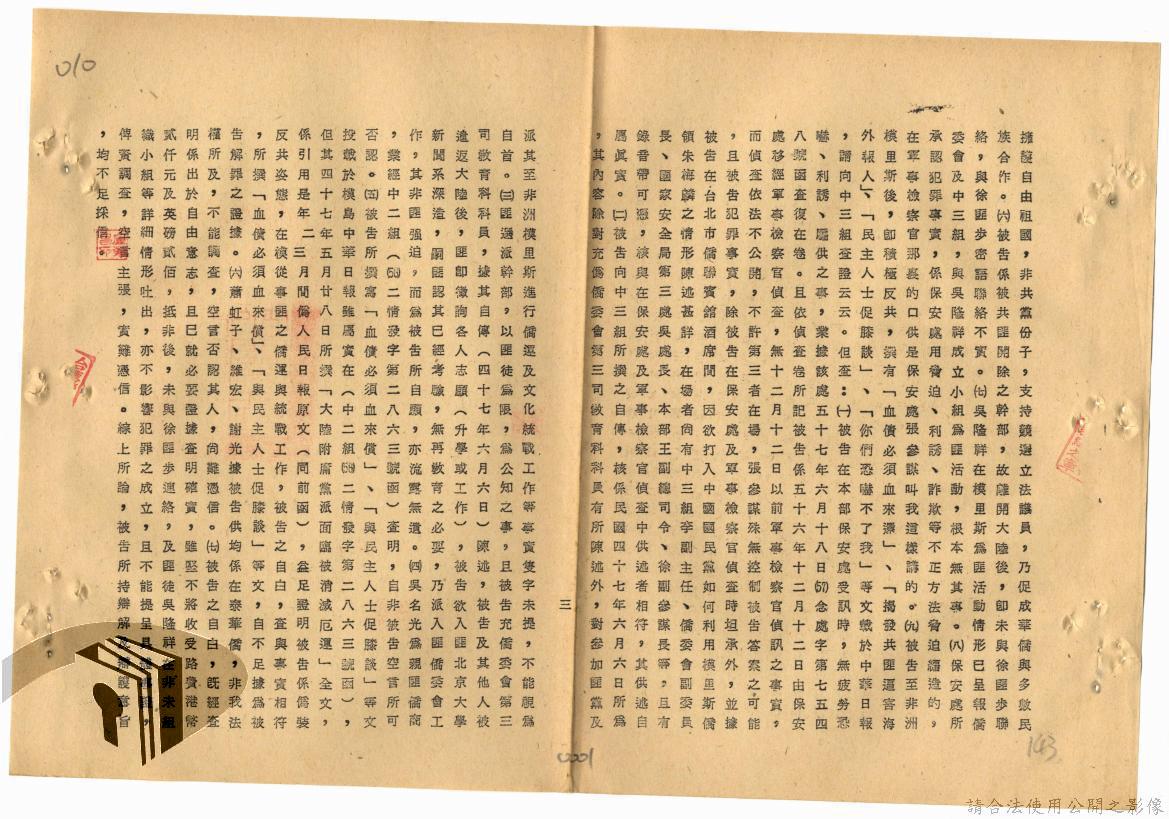 擁護自由祖國，非共黨份子，支持競選立法議員，乃促成華僑與多數民
族合作。㈥被告係被共匪開除之幹部，故離開大陸後，卽未與徐匪步聯
絡，與徐匪步密語聯絡不實。㈦吳隆祥在模里斯為匪活動情形已呈報僑
委會及中三組，與吳隆祥成立小組為匪活動，根本無其事。㈧保安處所
承認犯罪事實，係保安處用脅迫、利誘、詐欺等不正方法脅迫謅造的，
在軍事檢察官那裏的口供是保安處張參謀叫我這樣講的。㈨被告至非洲
模里斯後，卽積極反共，撰有「血債必須血來還」、「揭發共匪逼害海
外報人」、「民主人士促膝談」、「你們恐嚇不了我」等文載於中華日報
，請向中三組查證云云。但查：㈠被告在本部保安處受訊時，無疲勞恐
嚇、利誘、騙供之事，業據該處五十七年六月十八日(57)念處字第七五四
八號函查復在卷。且依偵查卷所記被告係五十六年十二月十二日由保安
處移經軍事檢察官偵查，無十二月十二日以前軍事檢察官偵訊之事實，
而偵查依法不公開，不許第三者在場，張參謀殊無控制被告答案之可能
，且被告犯罪事實，除被告在保安處及軍事檢察官偵查時坦承外，並據
被告在台北市僑聯賓館酒席間，因欲打入中國國民黨如何利用模里斯僑
領朱海麟之情形陳述甚詳，在場者尚有中三組李副主任、僑委會副委員
長、國家安全局第三處吳處長、本部王副總司令、徐副參謀長等，且有
錄音帶可憑，核與在保安處及軍事檢察官偵查中供述者相符，其供述自
屬眞實。㈡被告向中三組所撰之自傳，核係民國四十七年六月六日所為
，其內容除對充僞僑委會第三司敎育科科員有所陳述外，對參加匪黨及
三
派其至非洲模里斯進行僑運及文化統戰工作等事實隻字未提，不能視為
自首。㈢匪遴派幹部，以匪徒為限，為公知之事，且被告充僞僑委會第三
司敎育科科員，據其自傳（四十七年六月六日）陳述，被告及其他人被
遣返大陸後，匪卽徵詢各人志願（升學或工作），被告欲入匪北京大學
新聞系深造，嗣匪認其已經考驗，無再敎育之必要，乃派入匪僑委會工
作，其非匪強迫，而為被告所自願，亦流露無遺。㈣吳名光為親匪僑商
，業經中二組(58)二情發字第二八六三號函查明，自非被告空言所可
否認。㈤被告所撰寫「血債必須血來償」、「與民主人士促膝談」等文
投載於模島中華日報雖屬實在（中二組(58)二情發字第二八六三號函），
但其四十七年五月廿八日所撰「大陸附庸黨派面臨被消滅厄運」全文，
係引用是年二、三月間僞人民日報原文（同前函），益足證明被告係僞裝
反共姿態，在模從事匪之僑運與統戰工作，被告之自白，查與事實相符
，所撰「血債必須血來償」、「與民主人士促膝談」等文，自不足據為被
告解罪之證據。㈥蕭虹子、維宏、謝光據被告供均係在泰華僑，非我法
權所及，不能調查，空言否認其人，尚難憑信。㈦被告之自白，旣經查
明係出於自由意志，且巳就必要證據查明確實，雖堅不將收受路費港幣
貳仟元及英磅貳佰，抵非後，未與徐匪步連絡，及匪徒吳隆祥在非未組
織小組等詳細情形吐出，亦不影響犯罪之成立，且不能提呈具
俾資調查，空言主張，實難憑信。綜上所論，被告所持辯解及辯護意旨
，均不足採信。
010
143
0001
請合法使用公開之影像